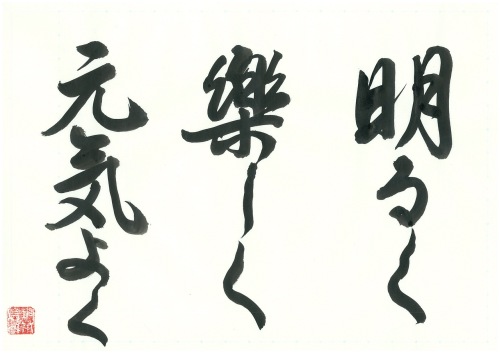 明るく
樂しく
元気よく